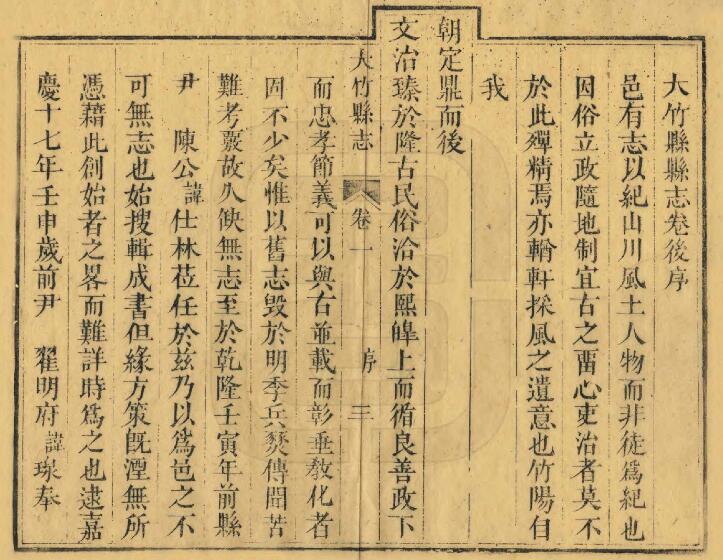 大竹縣縣志卷後序
邑有志以紀山川風土人物而非徒爲紀也
因俗立政隨地制宜古之畱心吏治者莫不
於此殫精焉亦輶軒採風之遺意也竹陽自
我
朝定鼎而後
文治臻於隆古民俗洽於熙皞上而循良善政下
大竹縣志 卷一 序 三
而忠孝節義可以與古並載而彰垂教化者
固不少矣惟以舊志毀於明季兵燹傳聞苦
難考覈故久缺無志至於乾隆壬寅年前縣
尹 陳公諱仕林莅任於兹乃以爲邑之不
可無志也始搜輯成書但緣方策旣湮無所
憑藉此創始者之畧而難詳時爲之也逮嘉
慶十七年壬申歲前尹 翟明府諱瑔奉